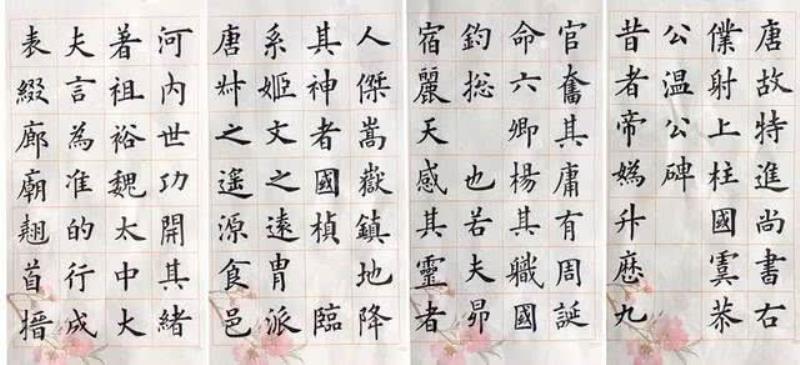 唐故特進尚書右
僕射上柱國虞恭
公溫公碑
昔者帝媯升厯九
官奮其庸有周誕
命六卿楊其職國
鈞揔 也若夫昴
宿麗天感其靈者
人傑嵩嶽鎮地降
其神者國楨 臨
系姬文之遠胄派
唐叔之遙源食邑
河內世功開其緒
著祖裕魏太中大
夫言為准的行成
表綴廊廟翹首搢